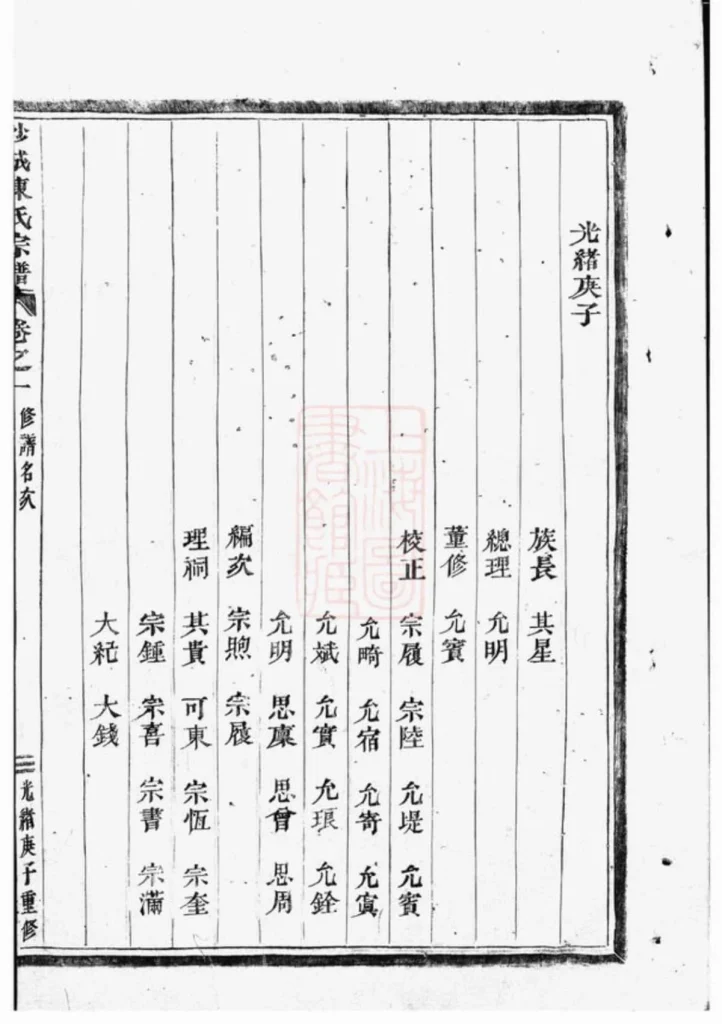 光緒庚子
族長 其星
總理 允明
董修 允賓
校正 宗履 宗陸 允堤 允賓
允畸 允宿 允寄 允寘
允斌 允實 允琅 允銓
允明 思稟 思曾 思周
編次 宗煦 宗履
理祠 其貴 可東 宗恆 宗奎
宗鍾 宗喜 宗書 宗滿
大紀 大錢
沙城陳氏宗譜 卷之一 修譜名次 三 光緒庚子重修
上海圖書館藏